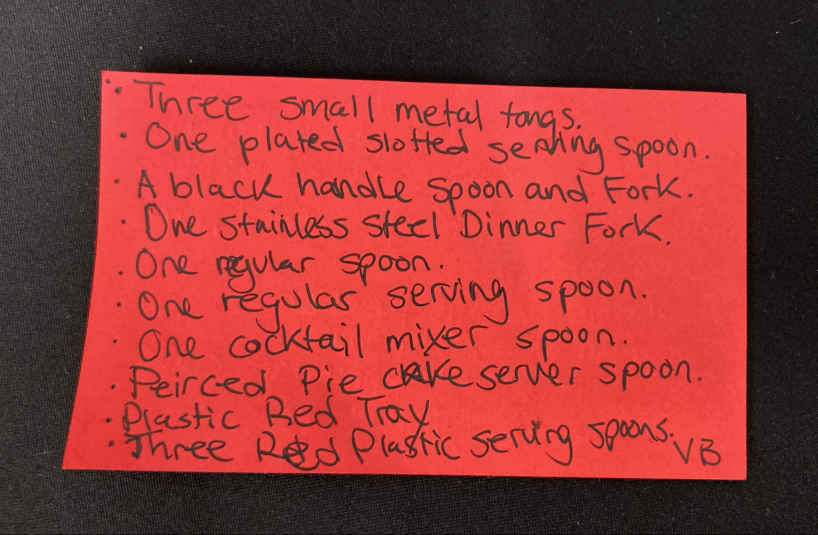 · Three small metal tongs.
· One plated slotted serving spoon.
· A black handle spoon and Fork.
· One stainless steel Dinner Fork.
. One regular spoon.
· One regular serving spoon.
· One cocktail mixer spoon.
· Peirced Pie cake server spoon.
· Plastic Red Tray
· Three Red Plastic serving spoons.
VB